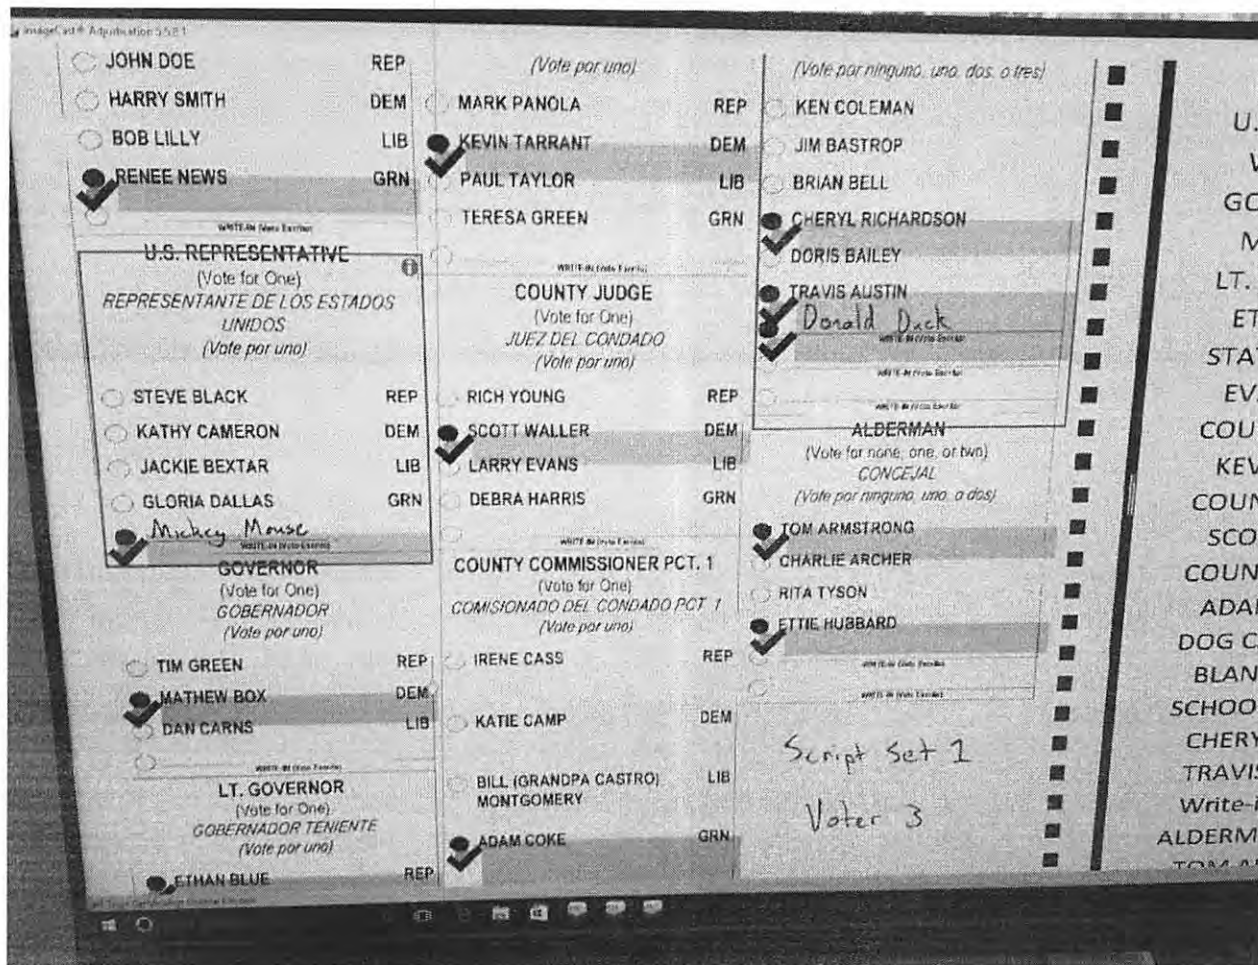 ImageCast® Adjudication 5.5.8.1
JOHN DOE REP
HARRY SMITH DEM
BOB LILLY LIB
RENEE NEWS GRN
WRITE-IN (Voto Escrito)
U.S. REPRESENTATIVE
(Vote for One)
REPRESENTANTE DE LOS ESTADOS
UNIDOS
(Vote por uno)
STEVE BLACK REP
KATHY CAMERON DEM
JACKIE BEXTAR LIB
GLORIA DALLAS GRN
Mickey Mouse
WRITE-IN (Voto Escrito)
GOVERNOR
(Vote for One)
GOBERNADOR
(Vote por uno)
TIM GREEN REP
MATHEW BOX DEM
DAN CARNS LIB
WRITE-IN (Voto Escrito)
LT. GOVERNOR
(Vote for One)
GOBERNADOR TENIENTE
(Vote por uno)
ETHAN BLUE REP
(Vote por uno)
MARK PANOLA REP
KEVIN TARRANT DEM
PAUL TAYLOR LIB
TERESA GREEN GRN
WRITE-IN (Voto Escrito)
COUNTY JUDGE
(Vote for One)
JUEZ DEL CONDADO
(Vote por uno)
RICH YOUNG REP
SCOTT WALLER DEM
LARRY EVANS LIB
DEBRA HARRIS GRN
WRITE-IN (Voto Escrito)
COUNTY COMMISSIONER PCT. 1
(Vote for One)
COMISIONADO DEL CONDADO PCT. 1
(Vote por uno)
IRENE CASS REP
KATIE CAMP DEM
BILL (GRANDPA CASTRO) LIB
MONTGOMERY
ADAM COKE GRN
(Vote por ninguno, uno, dos, o tres)
KEN COLEMAN
JIM BASTROP
BRIAN BELL
CHERYL RICHARDSON
DORIS BAILEY
TRAVIS AUSTIN
Donald Duck
WRITE-IN (Voto Escrito)
WRITE-IN (Voto Escrito)
WRITE-IN (Voto Escrito)
ALDERMAN
(Vote for none, one, or two)
CONCEJAL
(Vote por ninguno, uno, o dos)
TOM ARMSTRONG
CHARLIE ARCHER
RITA TYSON
ETTIE HUBBARD
WRITE-IN (Voto Escrito)
WRITE-IN (Voto Escrito)
Script Set 1
Voter 3
U.
GO
M
LT.
ET
STAT
EV
COU
KEV
COUN
SCO
COUN
ADA
DOG C
BLAN
SCHOO
CHERY
TRAVIS
Write-i
ALDERM
TOM A